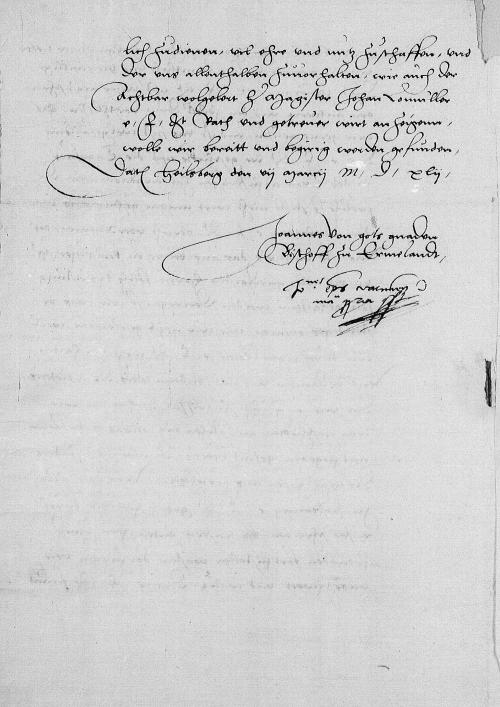 lich zudienen, vil ehre und nutz zuschaffen, und
der uns allenthalben zuuorhalten, wie auch der
Achtbar wolgelert H Magister Johan Lomüller
e, f, Dt Rath und getreuer wirt anzeigenn,
wolle wir bereitt und begirig werden gefunden,
Datꝭ Heilsberg den vij Marcij M, D, xlij,
Joannes von gots gnaden
Bischoff zu Ermelandt,
Jo eps
manu ppria sst